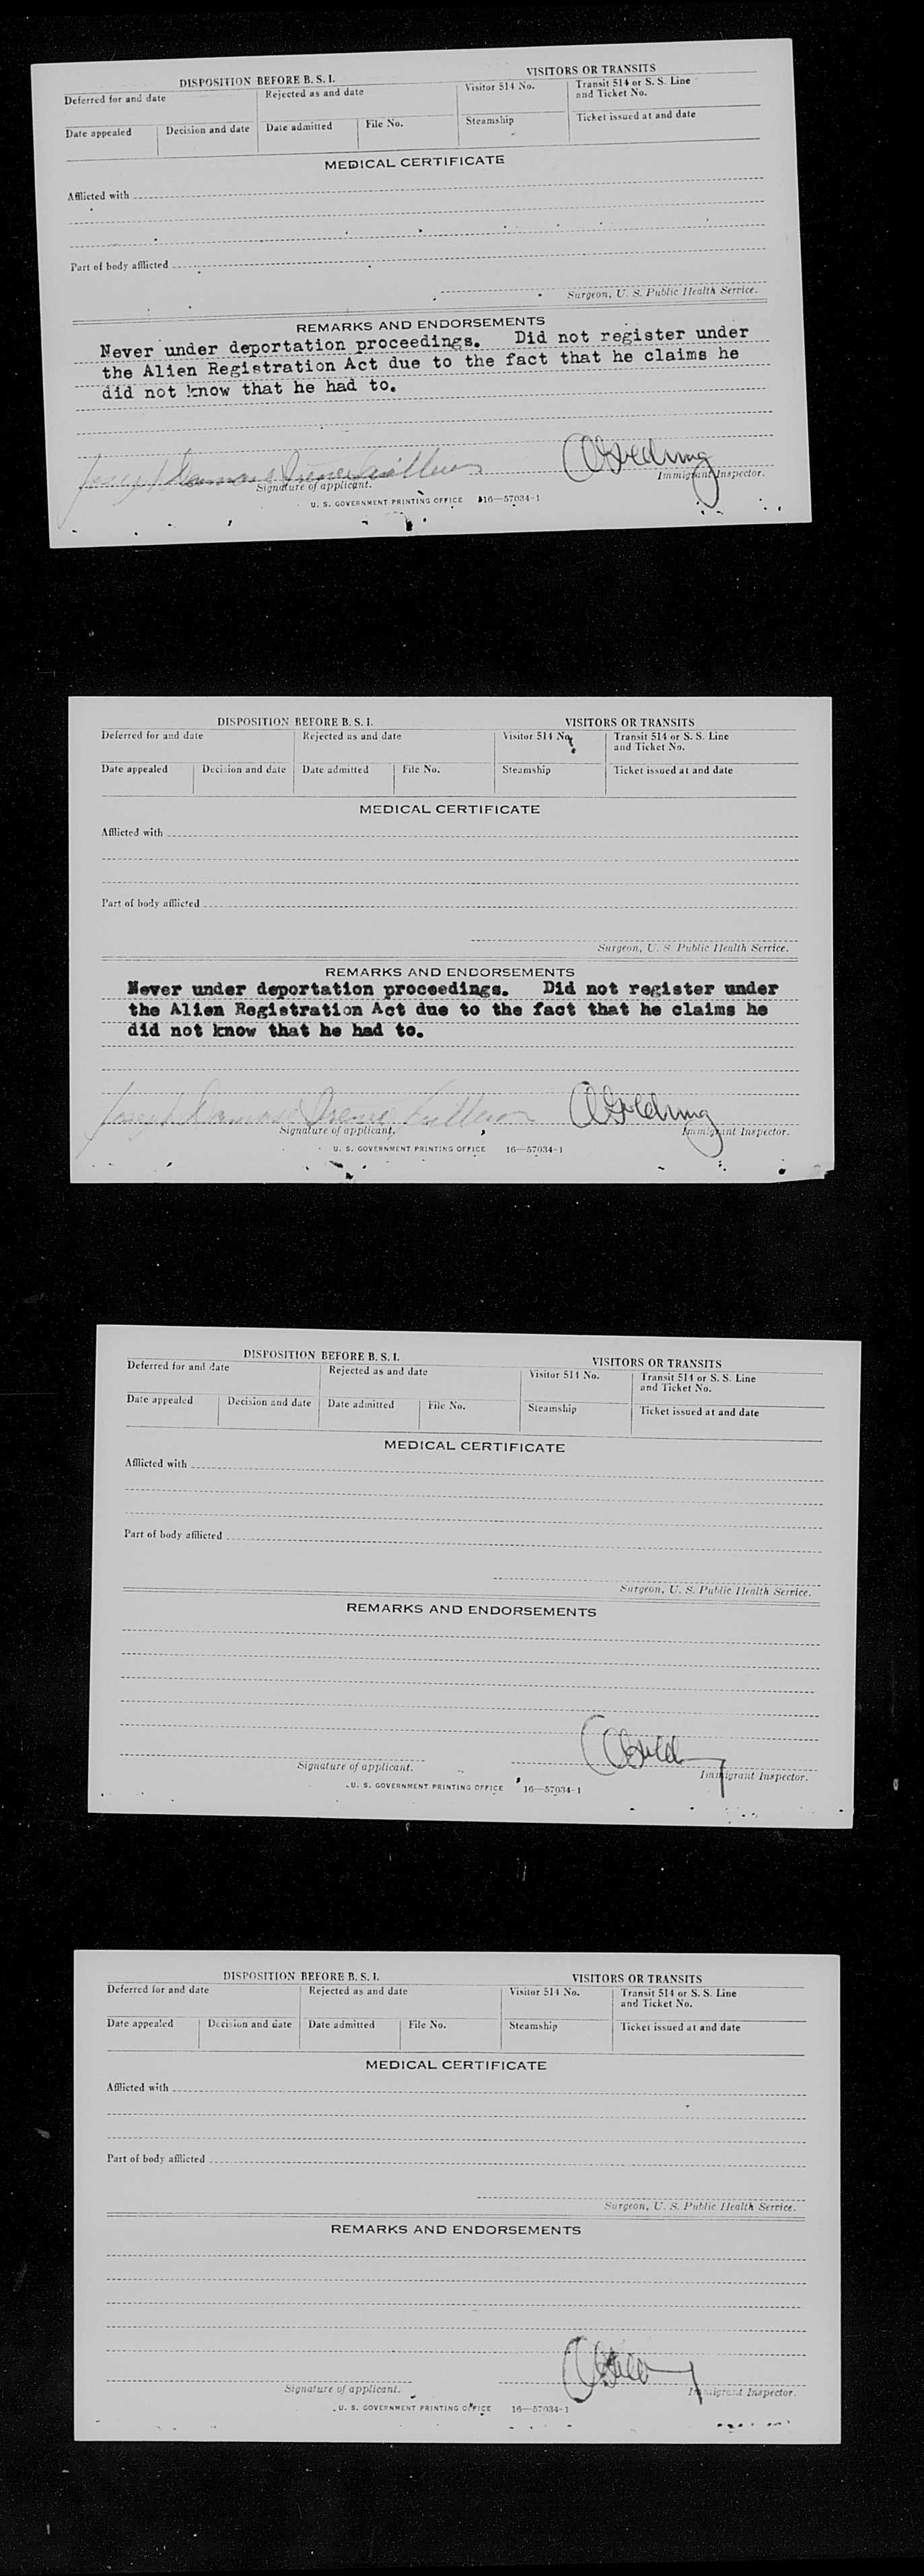 DISPOSITION BEFORE B. S. I. VISITORS OR TRANSITS
Deferred for and date Rejected as and date Visitor 514 No. Transit 514 or S. S. Line and Ticket No.
Date appealed Decision and date Date admitted File No. Steamship Ticket issued at and date
MEDICAL CERTIFICATE
Afflicted with
Part of body afflicted
Surgeon, U. S. Public Health Service.
REMARKS AND ENDORSEMENTS
Never under deportation proceedings. Did not register under
the Alien Registration Act due to the fact that he claims he
did not know that he had to.
Joseph
Signature of applicant. Immigrant Inspector.
U. S. GOVERNMENT PRINTING OFFICE 16—57034-1
DISPOSITION BEFORE B. S. I. VISITORS OR TRANSITS
Deferred for and date Rejected as and date Visitor 514 No. Transit 514 or S. S. Line and Ticket No.
Date appealed Decision and date Date admitted File No. Steamship Ticket issued at and date
MEDICAL CERTIFICATE
Afflicted with
Part of body afflicted
Surgeon, U. S. Public Health Service.
REMARKS AND ENDORSEMENTS
Never under deportation proceedings. Did not register under
the Alien Registration Act due to the fact that he claims he
did not know that he had to.
Joseph
Signature of applicant. Immigrant Inspector.
U. S. GOVERNMENT PRINTING OFFICE 16—57034-1
DISPOSITION BEFORE B. S. I. VISITORS OR TRANSITS
Deferred for and date Rejected as and date Visitor 514 No. Transit 514 or S. S. Line and Ticket No.
Date appealed Decision and date Date admitted File No. Steamship Ticket issued at and date
MEDICAL CERTIFICATE
Afflicted with
Part of body afflicted
Surgeon, U. S. Public Health Service.
REMARKS AND ENDORSEMENTS
Signature of applicant. Immigrant Inspector.
U. S. GOVERNMENT PRINTING OFFICE 16—57034-1
DISPOSITION BEFORE B. S. I. VISITORS OR TRANSITS
Deferred for and date Rejected as and date Visitor 514 No. Transit 514 or S. S. Line and Ticket No.
Date appealed Decision and date Date admitted File No. Steamship Ticket issued at and date
MEDICAL CERTIFICATE
Afflicted with
Part of body afflicted
Surgeon, U. S. Public Health Service.
REMARKS AND ENDORSEMENTS
Signature of applicant. Immigrant Inspector.
U. S. GOVERNMENT PRINTING OFFICE 16—57034-1